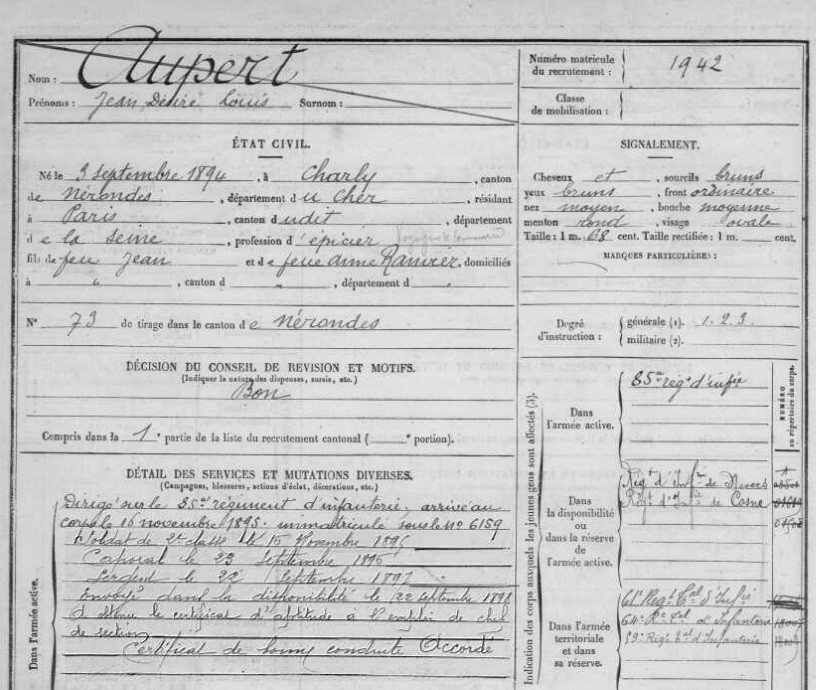 Nom : Aupert
Prénoms : Jean, Désiré Louis Surnom :
Numéro matricule du recrutement : 1942
Classe de mobilisation :
ÉTAT CIVIL.
Né le 3 septembre 1894, à Charly, canton
de Nérondes, département du Cher, résidant
à Paris, canton dudit, département
de la Seine, profession d'épicier
fils de feu Jean et de feue Anne Ramirez, domiciliés
à " , canton d " , département d "
N° 73 de tirage dans le canton de Nérondes
SIGNALEMENT.
Cheveux et , sourcils bruns
yeux bruns , front ordinaire
nez moyen , bouche moyenne
menton rond , visage ovale
Taille : 1 m. 68 cent. Taille rectifiée : 1 m. cent.
MARQUES PARTICULIÈRES :
Degré d'instruction : générale (1). 1.2.3.
militaire (2).
DÉCISION DU CONSEIL DE REVISION ET MOTIFS.
(Indiquer la nature des dispenses, sursis, etc.)
Bon
Compris dans la 1e partie de la liste du recrutement cantonal ( e portion).
DÉTAIL DES SERVICES ET MUTATIONS DIVERSES.
(Campagnes, blessures, actions d'éclat, décorations, etc.)
Dans l'armée active.
Dirigé sur le 85e régiment d'infanterie, arrivé au
corps le 16 novembre 1895. immatriculé sous le No 6159
Soldat de 2e classe le 15 Novembre 1895
Caporal le 23 Septembre 1896
Sergent le 22 Septembre 1897
Envoyé dans la disponibilité le 22 septembre 1898
A obtenu le certificat d'aptitude à l'emploi de chef
de section
Certificat de bonne conduite Accordé
Indication des corps auxquels les jeunes gens sont affectés (3).
NUMÉRO au répertoire du corps.
Dans l'armée active.
85e régt d'infie
Dans la disponibilité ou dans la réserve de l'armée active.
Régt d'Infie de Nevers
Régt d'Infie de Cosne
Dans l'armée territoriale et dans sa réserve.
61e Régt Tal d'Infie
64e Rt Tal d'Infanterie
59e Régt Tal d'Infanterie